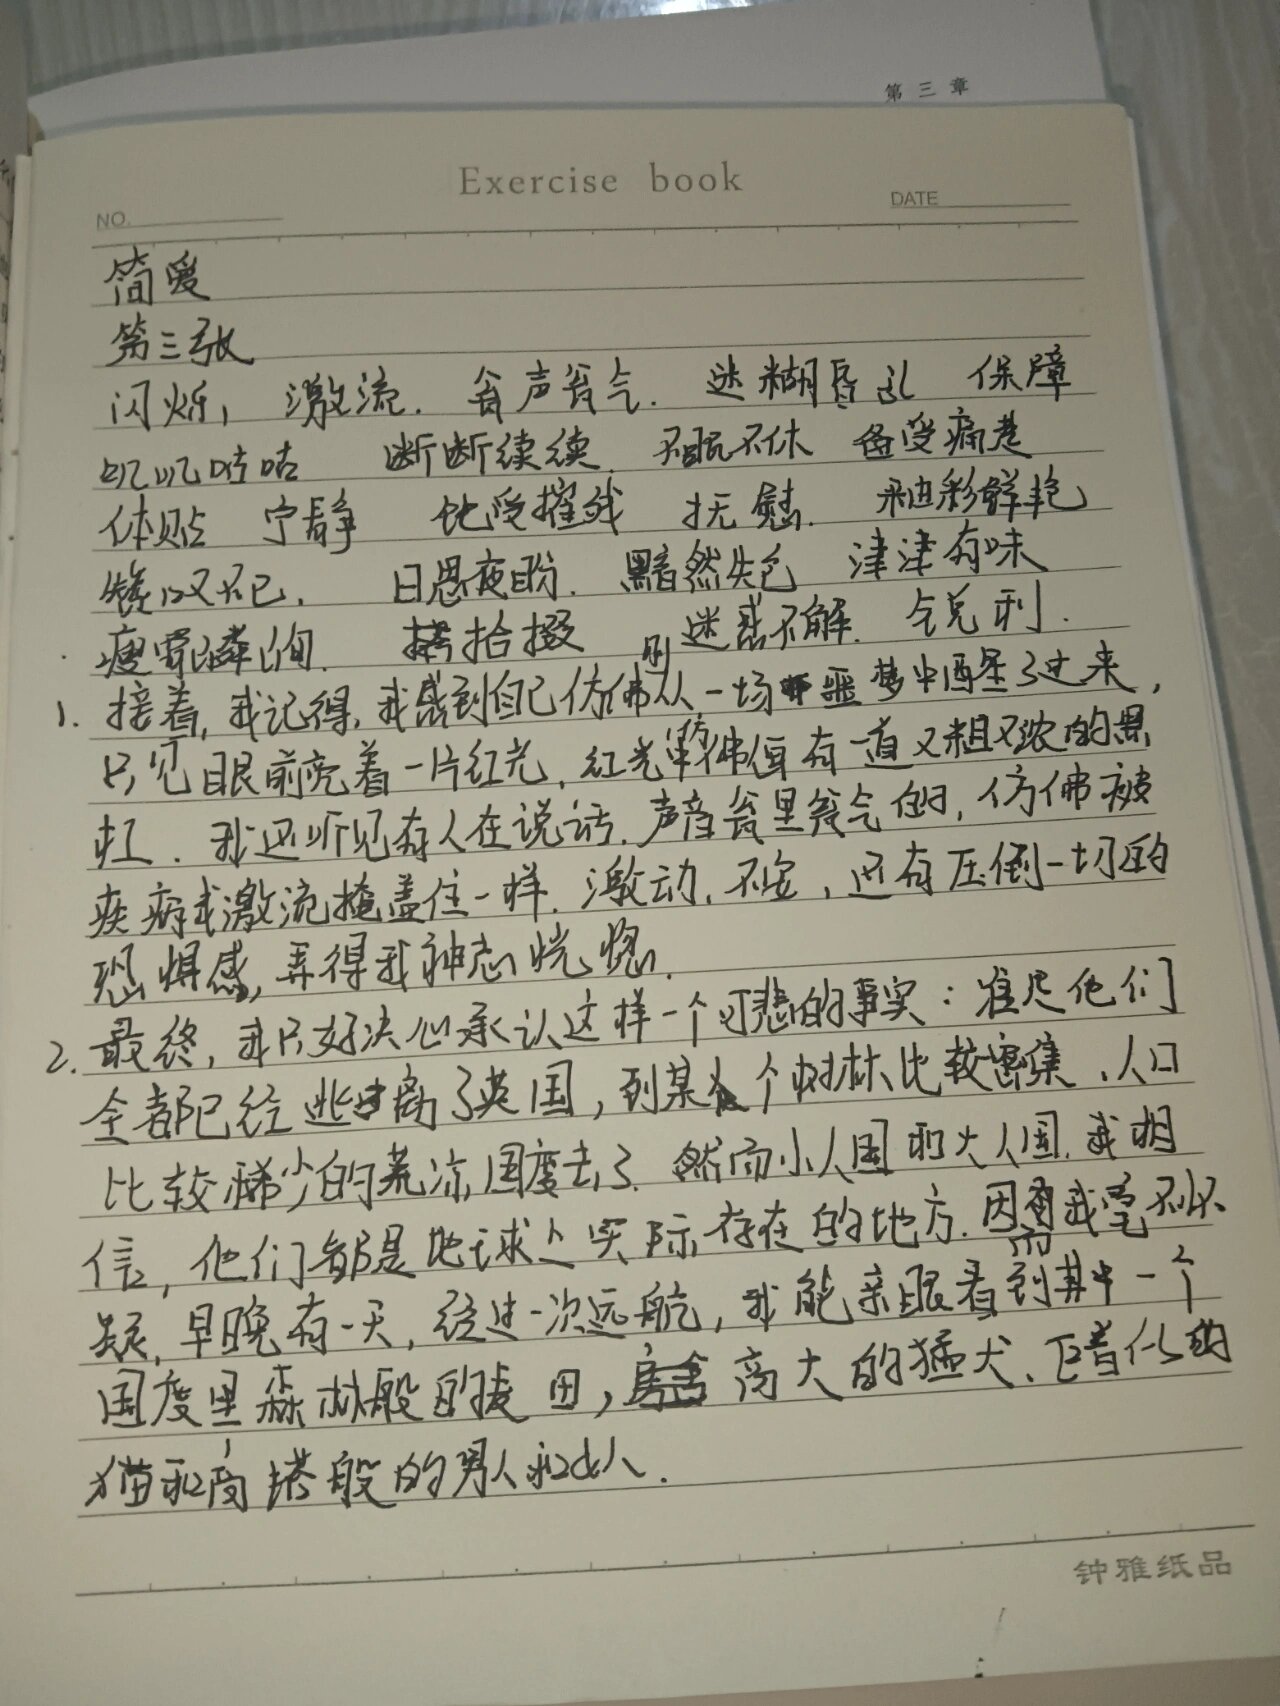 第三章
Exercise book
NO.
DATE
简爱
第三张
闪烁, 激流. 瓮声瓮气. 迷糊昏乱 保障
叽叽咕咕 断断续续. 不眠不休 备受痛楚
体贴 宁静 饱受摧残 抚慰. 色彩鲜艳
叹不已. 日思夜盼. 黯然失色 津津有味
瘦骨嶙峋. 拾掇 迷惑不解. 锐利.
1. 接着, 我记得, 我感到自己仿佛从一场噩梦中醒了过来,
只见眼前亮着一片红光, 红光仿佛值有一道又粗又浓的黑
杠. 我还听见有人在说话. 声音瓮里瓮气的, 仿佛被
疾病或激流掩盖住一样. 激动, 不安, 还有压倒一切的
恐惧感, 弄得我神志恍惚.
2. 最终, 我只好决心承认这样一个可悲的事实: 准是他们
全都已经逃离了英国, 到某个树林比较密集、人口
比较稀少的荒凉国度去了. 然而小人国和大人国, 我相
信, 他们都是地球上实际存在的地方. 因而我毫不怀
疑, 早晚有一天, 经过一次远航, 我能亲眼看到其中一个
国度里森林般的麦田, 高大的猛犬、巨兽似的
猫和高塔般的男人和女人.
钟雅纸品